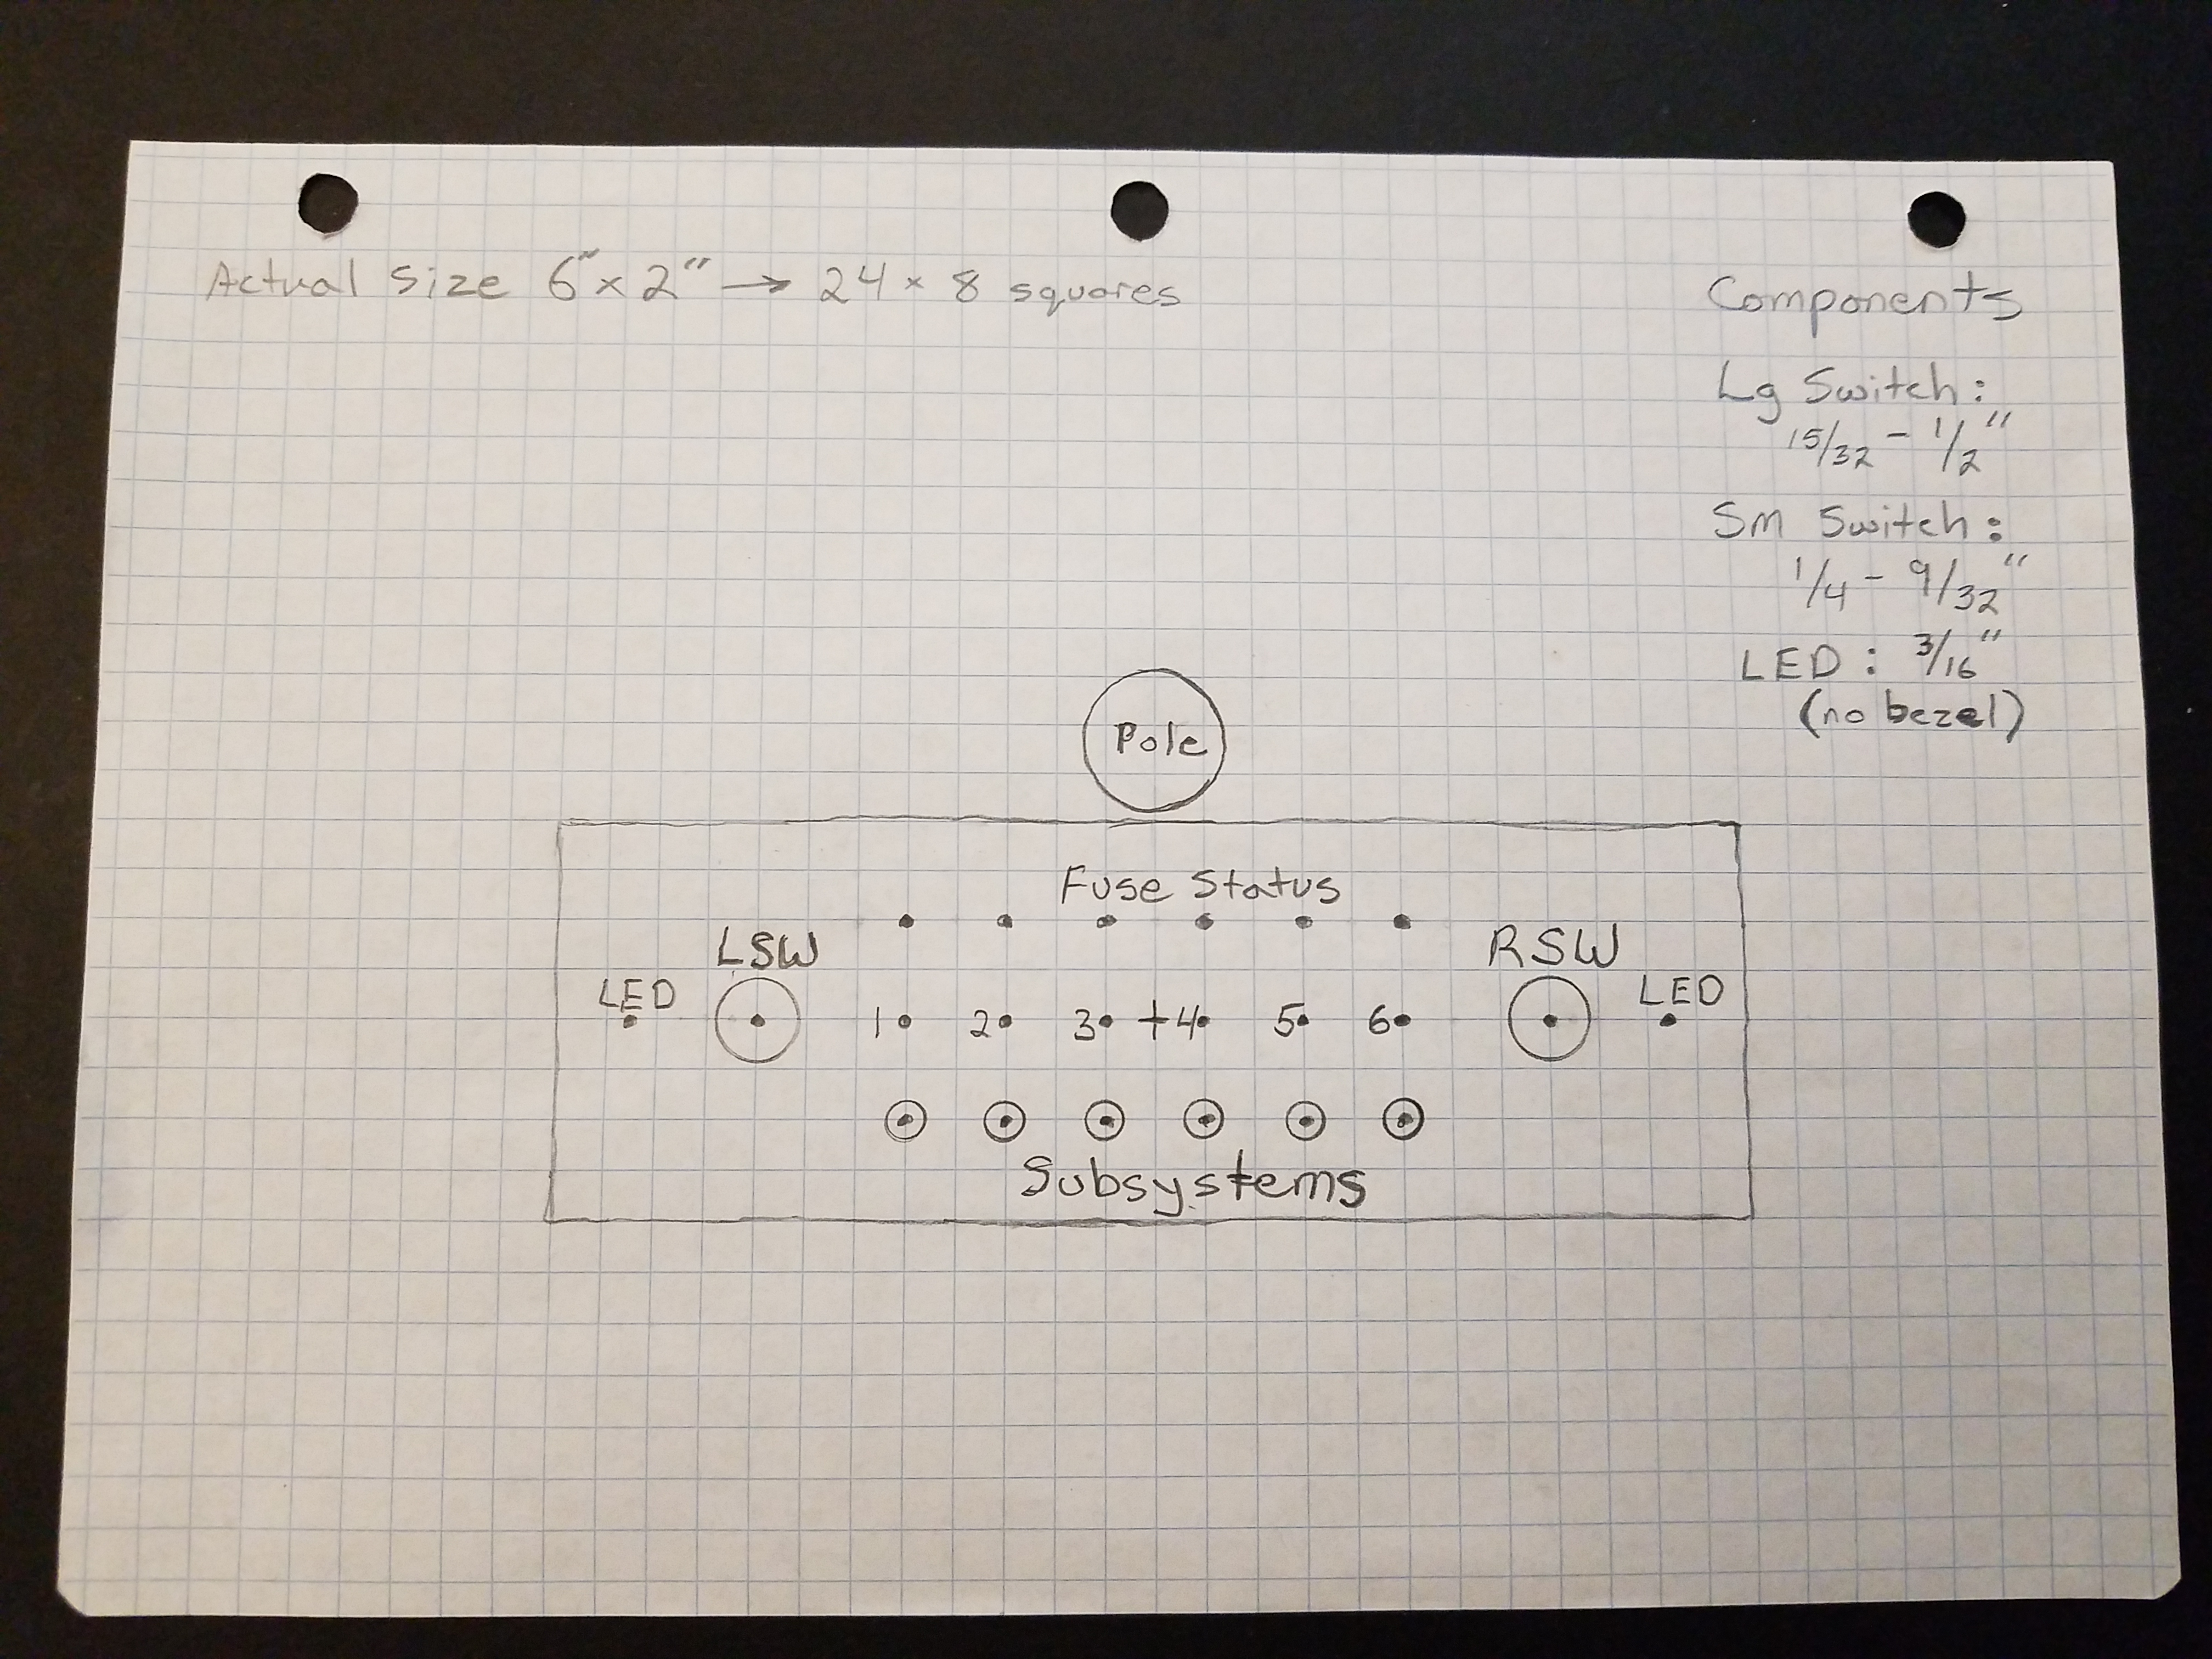 Actual Size 6"x 2" → 24 x 8 squares
Components
Lg Switch:
15/32 - 1/2"
Sm Switch:
1/4 - 9/32"
LED: 3/16"
(no bezel)
Pole
Fuse Status
LSW
RSW
LED
LED
1 2 3 +4 5 6
Subsystems